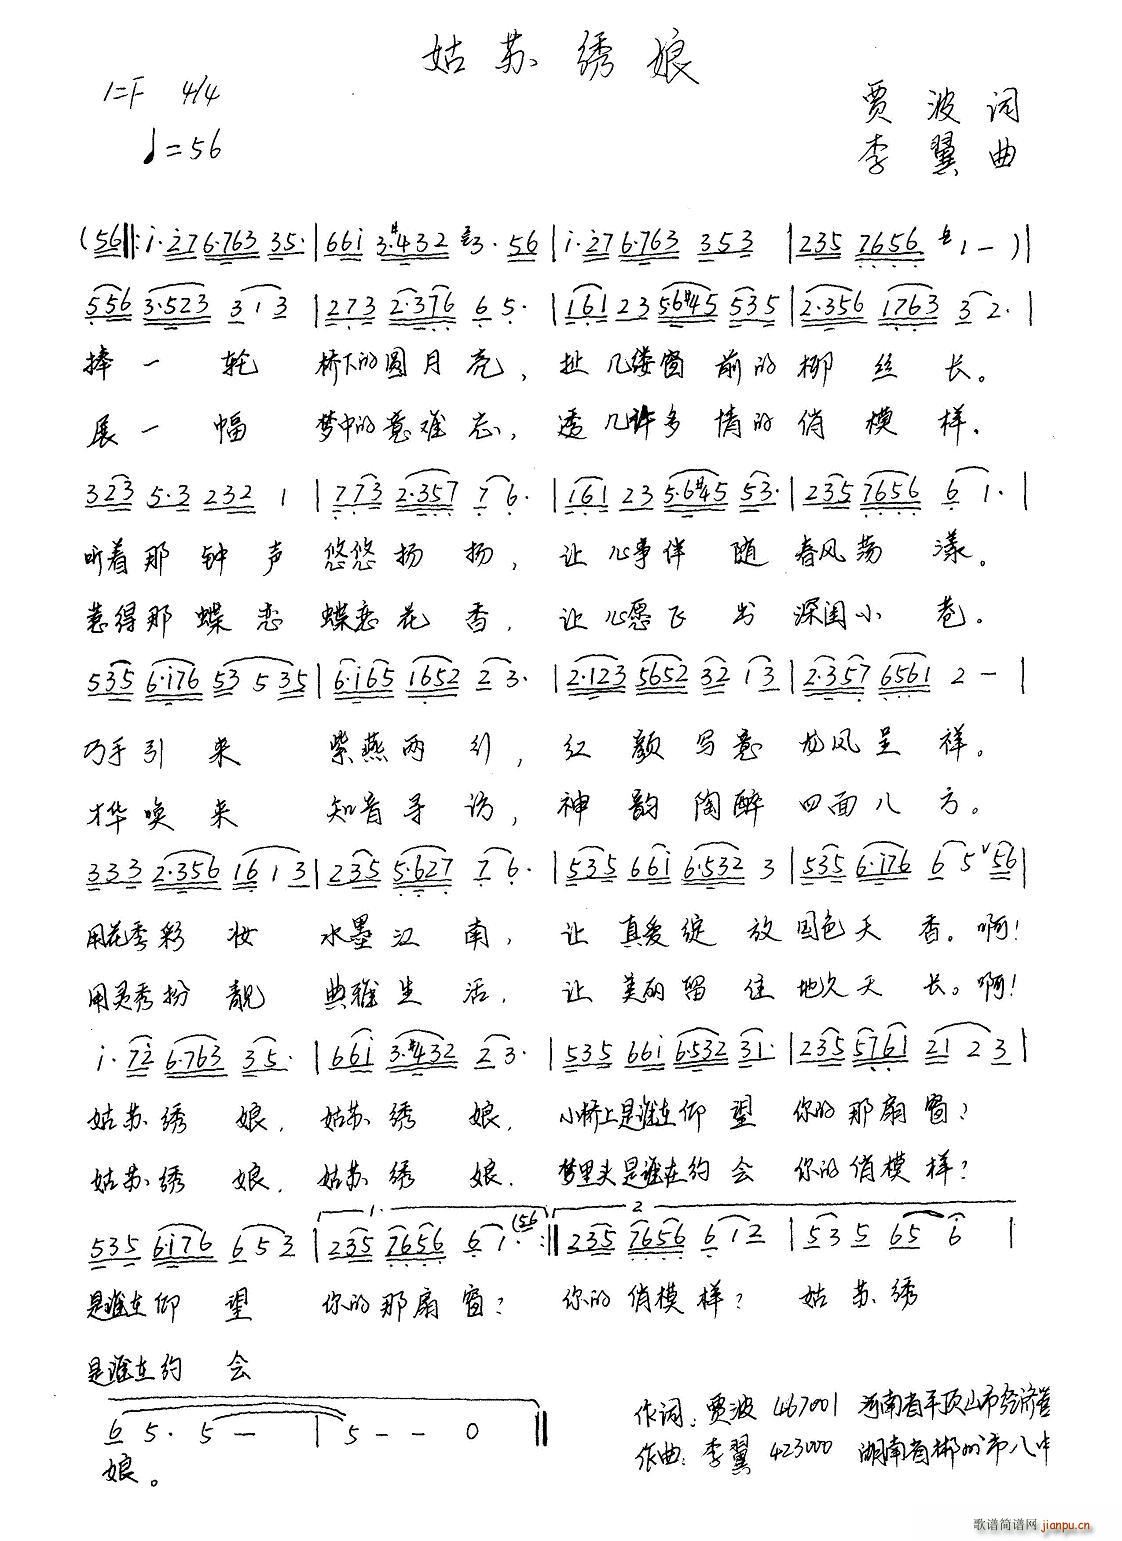 姑苏绣娘
1=F 4/4
♩=56
贾波词
李翼曲
(56‖: i·276·763 35·|66i 3·#432 3·56|i·276·763 353|235 7656 1-)|
556 3·523 313|273 2·376 65·|161 23 56#45 535|2·356 1763 32·|
捧一轮 桥下的圆月亮，扯几缕窗前的柳丝长。
展一幅 梦中的意难忘，透几许多情的俏模样。
323 5·3 232 1|773 2·357 76·|161 23 5·6#45 53·|235 7656 61·|
听着那钟声悠悠扬扬，让心事伴随春风荡漾。
惹得那蝶恋蝶恋花香，让心愿飞出深闺小巷。
535 6·i76 53 535|6·i65 1652 23·|2·123 5652 32 13|2·357 6561 2-|
巧手引来 紫燕两行，红颜写意龙凤呈祥。
才华唤来 知音寻访，神韵陶醉四面八方。
333 2·356 16 13|235 5·627 76·|535 66i 6·532 3|535 6·i76 65 56|
用花秀彩妆 水墨江南，让真爱绽放国色天香。啊！
用灵秀扮靓 典雅生活，让美丽留住地久天长。啊！
i·7i 6·763 35·|66i 3·#432 23·|535 66i 6·532 31·|235 5761 21 23|
姑苏绣娘，姑苏绣娘，小桥上是谁在仰望你的那扇窗？
姑苏绣娘，姑苏绣娘，梦里头是谁在约会你的俏模样？
1. 2
535 6i76 653|235 7656 61·(56:‖235 7656 612|535 65 6|
是谁在仰望 你的那扇窗？ 你的俏模样？ 姑苏绣
是谁在约会
65·5-|5--0‖
娘。
作词：贾波 467001 河南省平顶山市经济
作曲：李翼 423000 湖南省郴州市八中
歌谱简谱网 jianpu.cn